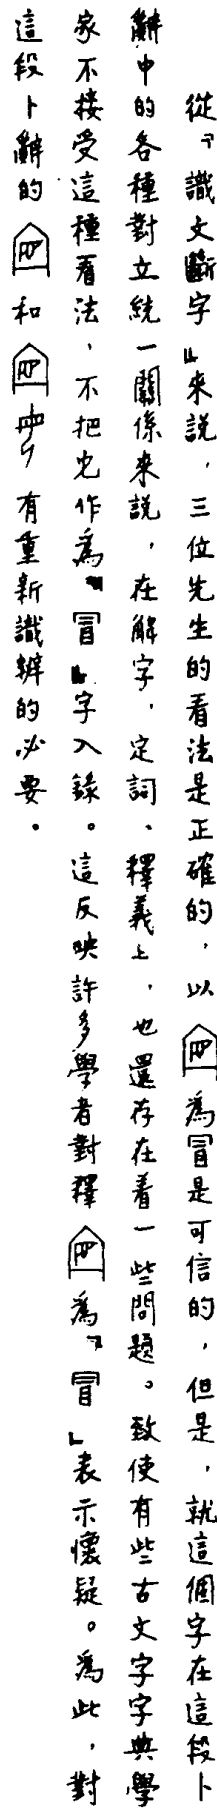 從「識文斷字」來説，三位先生的看法是正確的，以為冒是可信的，但是，就這個字在這段卜
辭中的各種對立統一關係來説，在解字、定詞、釋義上，也還存在着一些問題。致使有些古文字字典學
家不接受這種看法，不把它作為「冒」字入錄。這反映許多學者對釋為「冒」表示懷疑。為此，對
這段卜辭的和有重新識辨的必要。